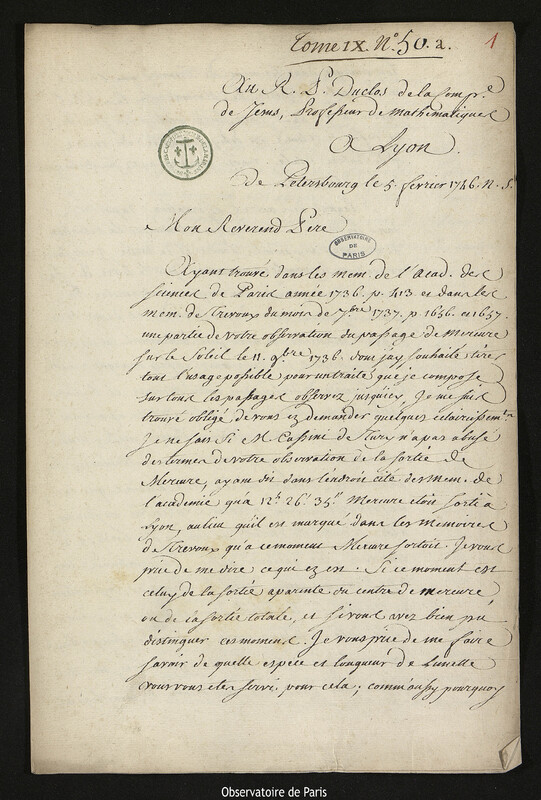 Tome IX. N.º 50. a.
1
Au R. P. Duclos de la Comp.e
de Jesus, Professeur de mathematiques
A Lyon.
de Petersbourg le 5 fevrier 1746. N. S.
Mon Reverend Pere
OBSERVATOIRE
DE
PARIS
Ayant trouvé dans les mem. de l'Acad. des
sciences de Paris année 1736. p. 413 et dans les
mem. de Trevoux du mois de 7bre 1737. p. 1656. et 1657.
une partie de votre observation du passage de Mercure
sur le Soleil le 11. 9bre 1736. dont jay souhaité tirer
tout l'usage possible pour un traité que je compose
sur tous les passages observez jusqu'icy, Je me suis
trouvé obligé de vous en demander quelques eclaircissemtn
Je ne sais si M Cassini de Thury n'a pas abusé
des termes de votre observation de la sortie de
Mercure, ayant dit dans l'endroit cité des mem. de
l'academie qu'a 12h. 26'. 35". Mercure etoit sorti à
Lyon, au lieu qu'il est marqué dans les Memoires
de Trevoux qu'a ce moment Mercure sortoit. Je vous
prie de me dire ce qui en est. Si ce moment est
celuy de la sortie aparente du centre de mercure
ou de la sortie totale, et si vous avez bien pu
distinguer ces momens. Je vous prie de me faire
savoir de quelle espece et longueur de Lunette
vous vous etes servi pour cela; comm'aussy pourquoy
Observatoire de Paris